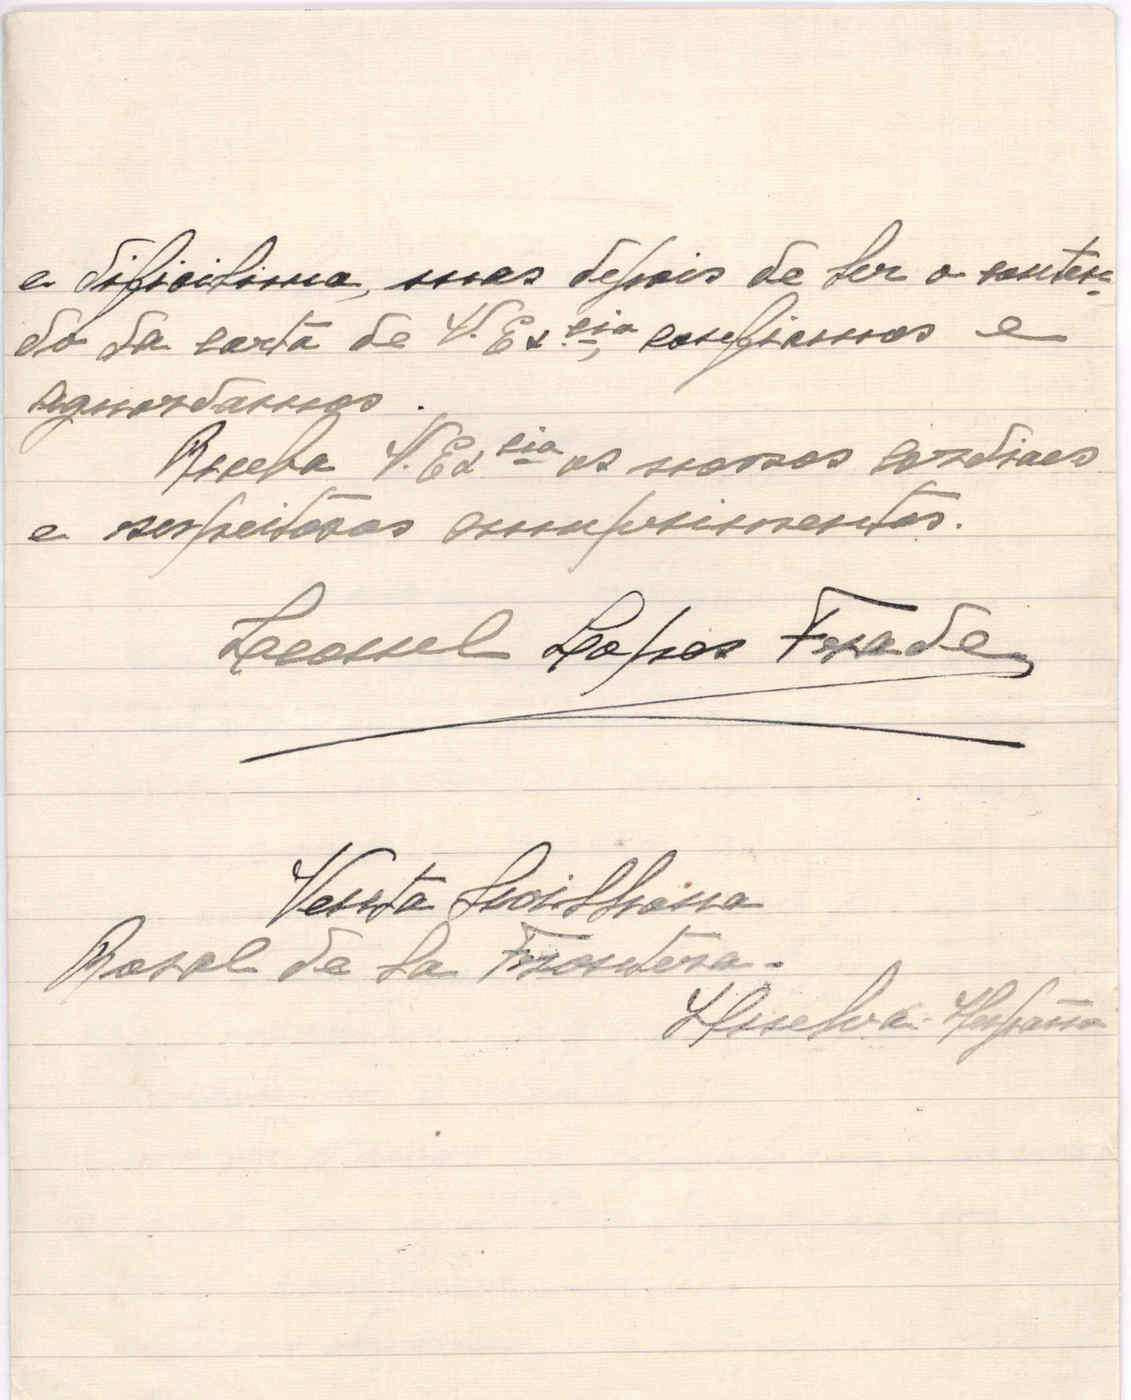 e dificilima, mas depois de ler o conteu-
do da carta de V. Ex.cia, confiamos e
aguardamos.
Receba V. Ex cia os nossos cordiaes
e respeitosos cumprimentos.
Lopes Frade
Venta
Rosal de la Frontera -
Huelva - Hespanha